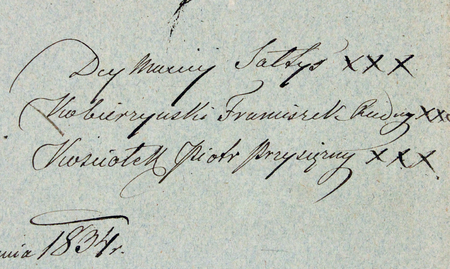 Sołtys xxx
Kobierzynski Franciszek Radny xxx
Kościołek Piotr Przysiężny xxx
1834 r.